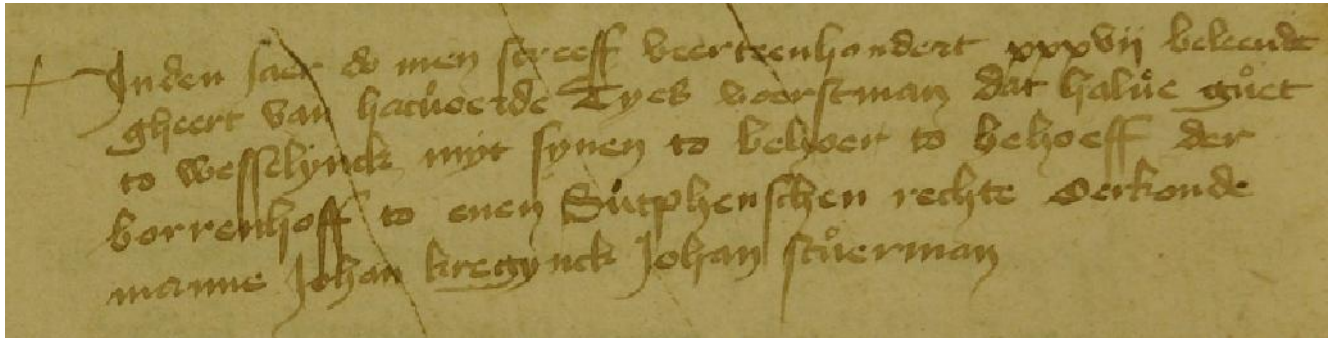 Inden Jaer do men screeff veerteenhondert xxxvij beleende
gheert van hacüorde Tyes voerstman dat halue guet
to wesselynck myt synen to behoer to behoeff der
borrenhoff to enen Sutphenschen rechte Oerkonde
manne Johan kregynck Johan stuerman